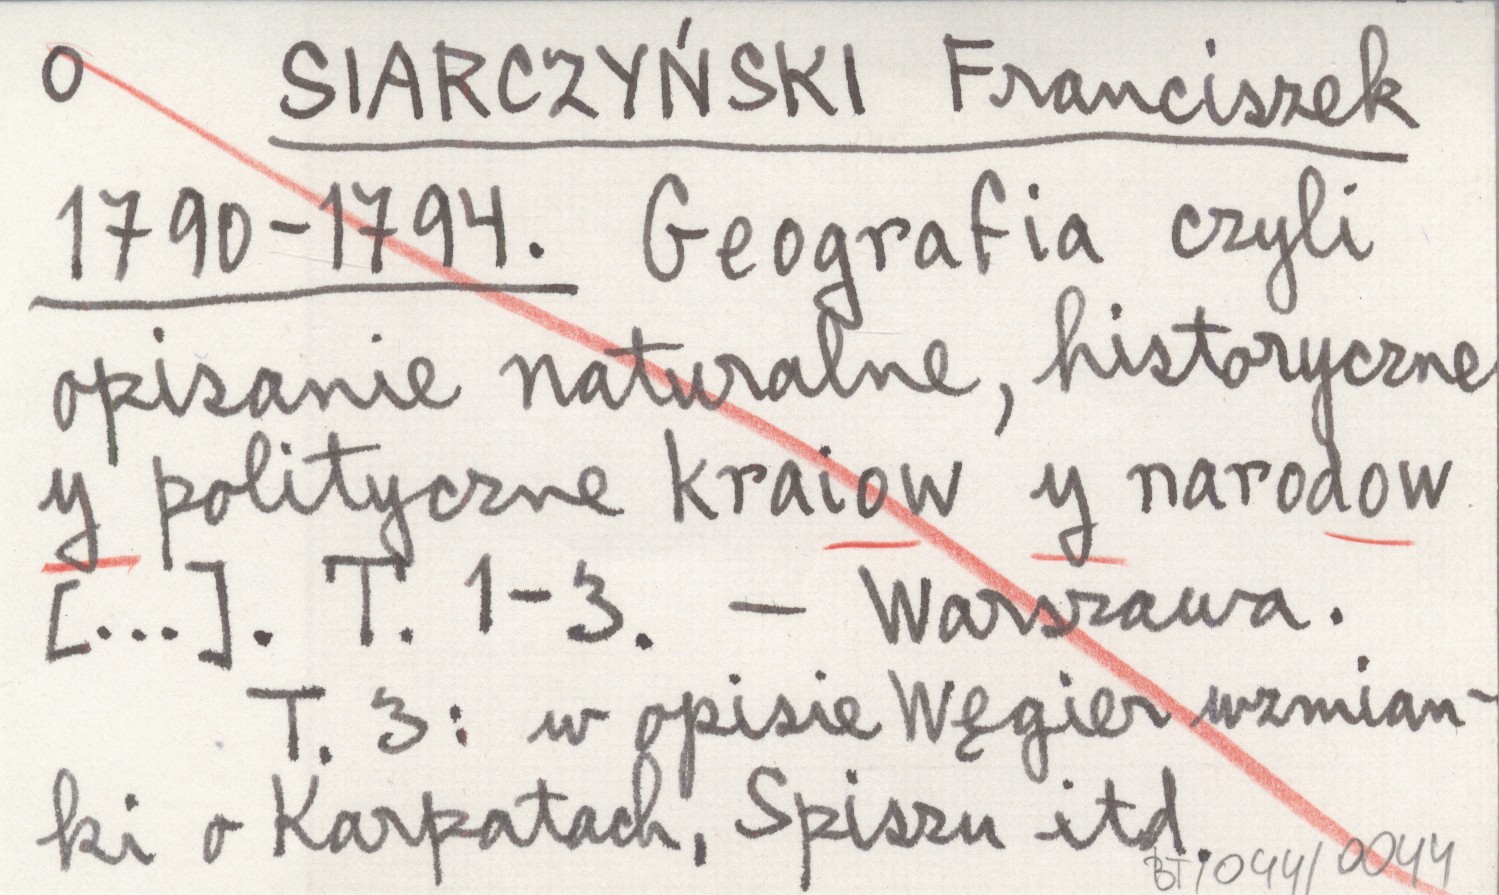 o SIARCZYŃSKI Franciszek
1790-1794. Geografia czyli
opisanie naturalne, historyczne
y polityczne kraiow y narodow
[...]. T. 1-3. — Warszawa.
T. 3: w opisie Węgier wzmian-
ki o Karpatach, Spiszu itd.
BT/044/0044